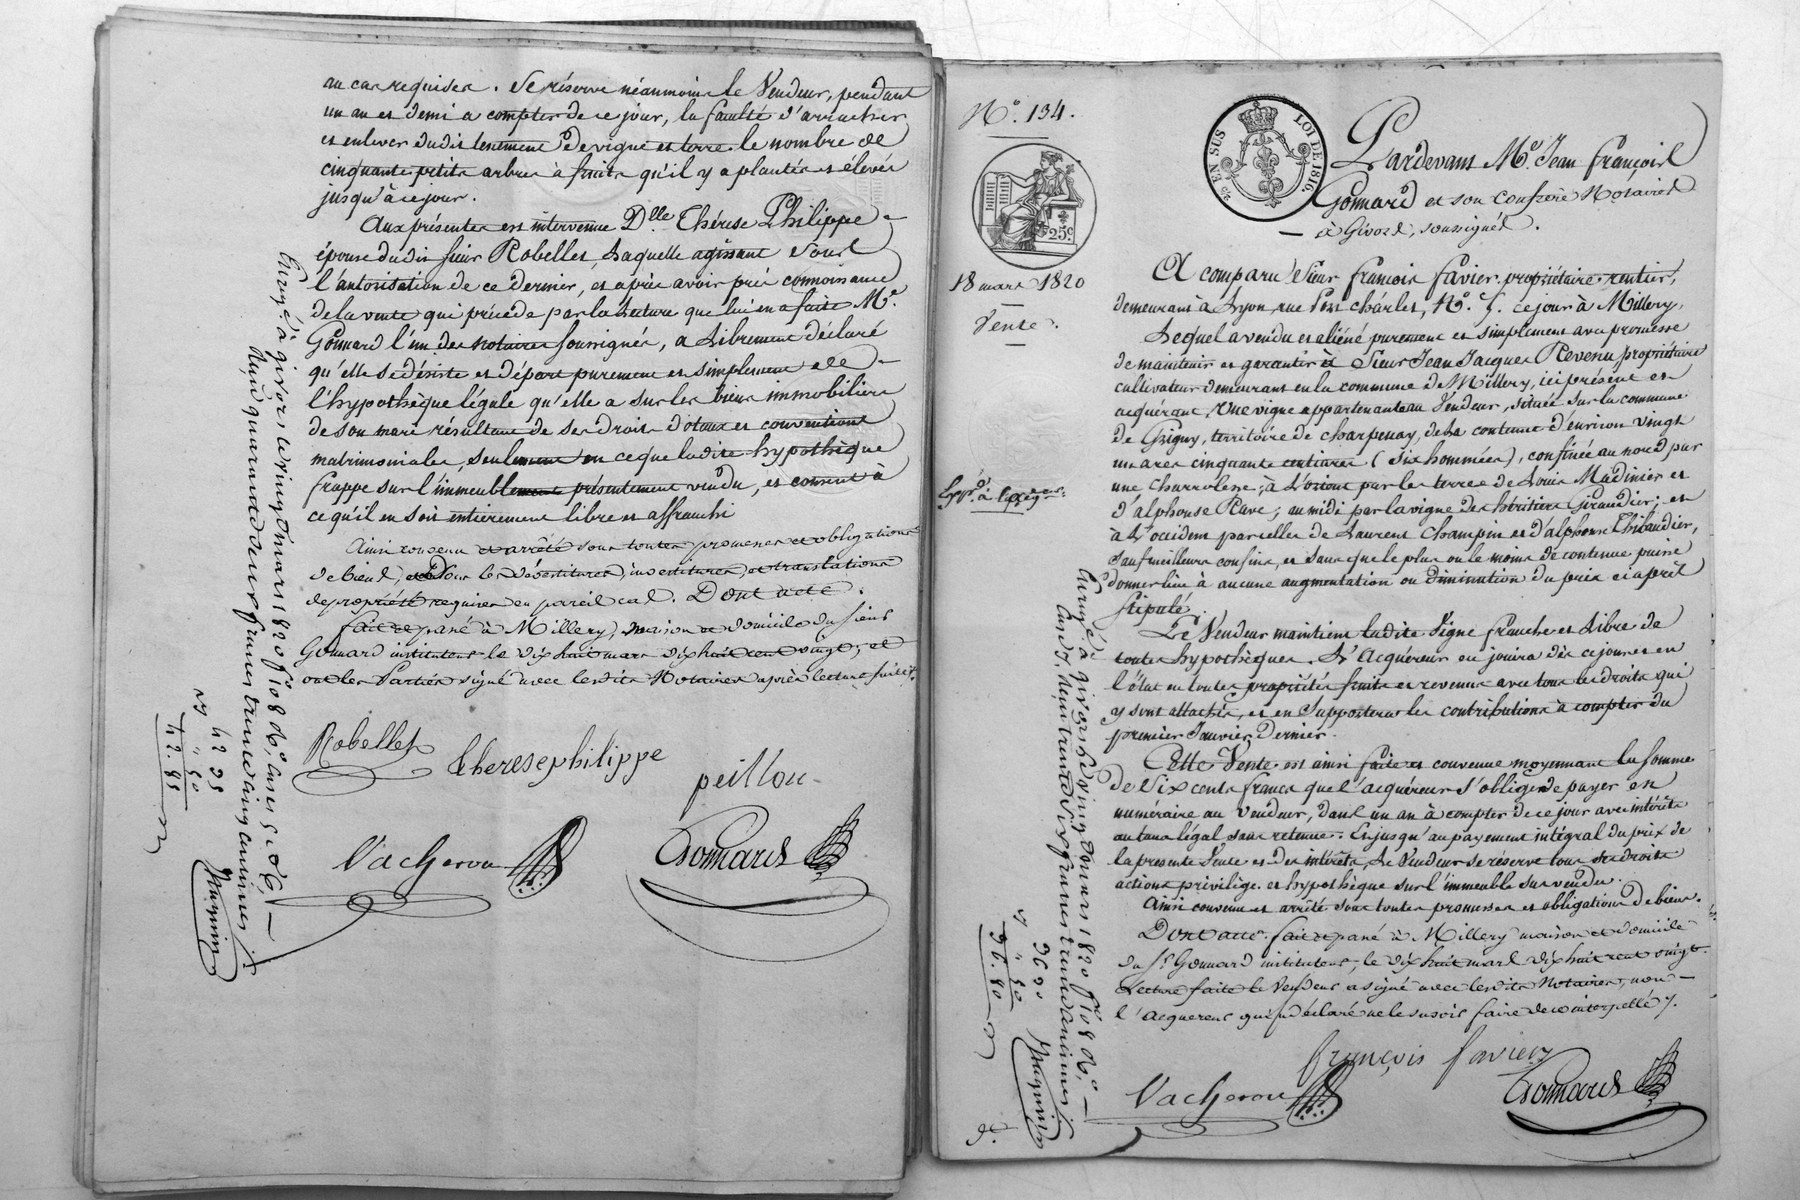 au cas requises. Se réserve néanmoins le Vendeur, pendant
un an et demi a compter de ce jour, la faculté d'arracher
et enlever dudit tenement de vigne et terre le nombre de
cinquante petits arbres à fruits qu'il y a plantés et élevés
jusqu'à ce jour.
Aux présentes est intervenue D.lle Thérèse Philippe
épouse dudit sieur Robellet, Laquelle agissant sous
l'autorisation de ce dernier, et après avoir pris connoissance
de la vente qui précède par la Lecture que lui en a faite M.e
Gonnard l'un des notaires soussignés, a Librement déclaré
qu'elle se désiste et départ purement et simplement de
l'hypothèque légale qu'elle a sur les biens immobiliers
de son mari résultant de ses droits dotaux et conventions
matrimoniales, seulement en ce que ladite hypothèque
frappe sur l'immeuble présentement vendu, et consent à
ce qu'il en soit entièrement libre et affranchi
Ainsi convenu et arrêté sous toutes promesses et obligations
de biens, sous les dévestitures, investitures, et translations
de propriété requises en pareil cas. Dont acte.
fait et passé à Millery, maison et domicile du sieur
Gonnard instituteur le dix huit mars dix huit cent vingt, et
ont les Parties signé avec lesdits Notaires après lecture faite
Robellet
therese philippe
peillon
Vacheron
Gonnard
Enregé à givors le vingt deux mars 1820 f.o 108 v.o, cases 5 & 6,
Reçu quarante deux francs trente cinq centimes
42 35
4 50
Magnin
N.o 134.
25c
EN SUS
LOI DE 1816.
18 mars 1820
Vente.
Pardevant M.e Jean François
Gonnard et son confrère Notaires
à Givors, soussignés.
A comparu Sieur François Favier propriétaire rentier,
demeurant à Lyon, rue Port Charles, N.o 5. ce jour à Millery,
Lequel a vendu et aliéné purement et simplement avec promesse
de maintenir et garantir à Sieur Jean Jacques Revenu propriétaire
cultivateur demeurant en la commune de Millery, ici présent et
acquérant, Une vigne appartenant au Vendeur, située sur la commune
de Grigny, territoire de Charpenay, de la contenue d'environ vingt
un ares cinquante centiares (six hommées), confinée au nord par
une Charrolesse; à L'orient par les terres de Louis Madinier et
d'alphonse Rave; au midi par la vigne des héritiers Giraudier; et
à L'occident par celles de Laurent Champin et d'alphonse Thibaudier,
sauf meilleurs confins, et sans que le plus ou le moins de contenue puisse
donner lieu à aucune augmentation ou diminution du prix ci après
stipulé.
Le Vendeur maintient ladite Vigne franche et Libre de
toutes hypothèques. L'Acquéreur en jouira dès ce jour et en
l'état en toutes propriétés fruits et revenus avec tous les droits qui
y sont attachés, et en supportera les contributions à compter du
premier Janvier Dernier.
Cette Vente est ainsi faite et convenue moyennant la somme
de Six cents francs que l'acquéreur s'oblige de payer en
numéraire au vendeur, dans un an à compter de ce jour avec intérêts
au taux légal sans retenue. Et jusqu'au payement intégral du prix de
la présente Vente et des intérêts, Le Vendeur se réserve tous ses droits
actions privilége et hypothèque sur l'immeuble sus vendu.
Ainsi convenu et arrêté sous toutes promesses et obligations de biens.
Dont acte. fait et passé à Millery maison et domicile
du S.r Gonnard instituteur, le dix huit mars dix huit cent vingt.
Lecture faite le Vendeur a signé avec lesdits Notaires, non
l'acquereur qui a déclaré ne le savoir faire de ce interpellé
françois favier
Vacheron
Gonnard
Enregé à givors le vingt deux mars 1820 f.o 108 v.o,
case 7, reçu trente six francs trente centimes
36 30
50
36. 80
Magnin